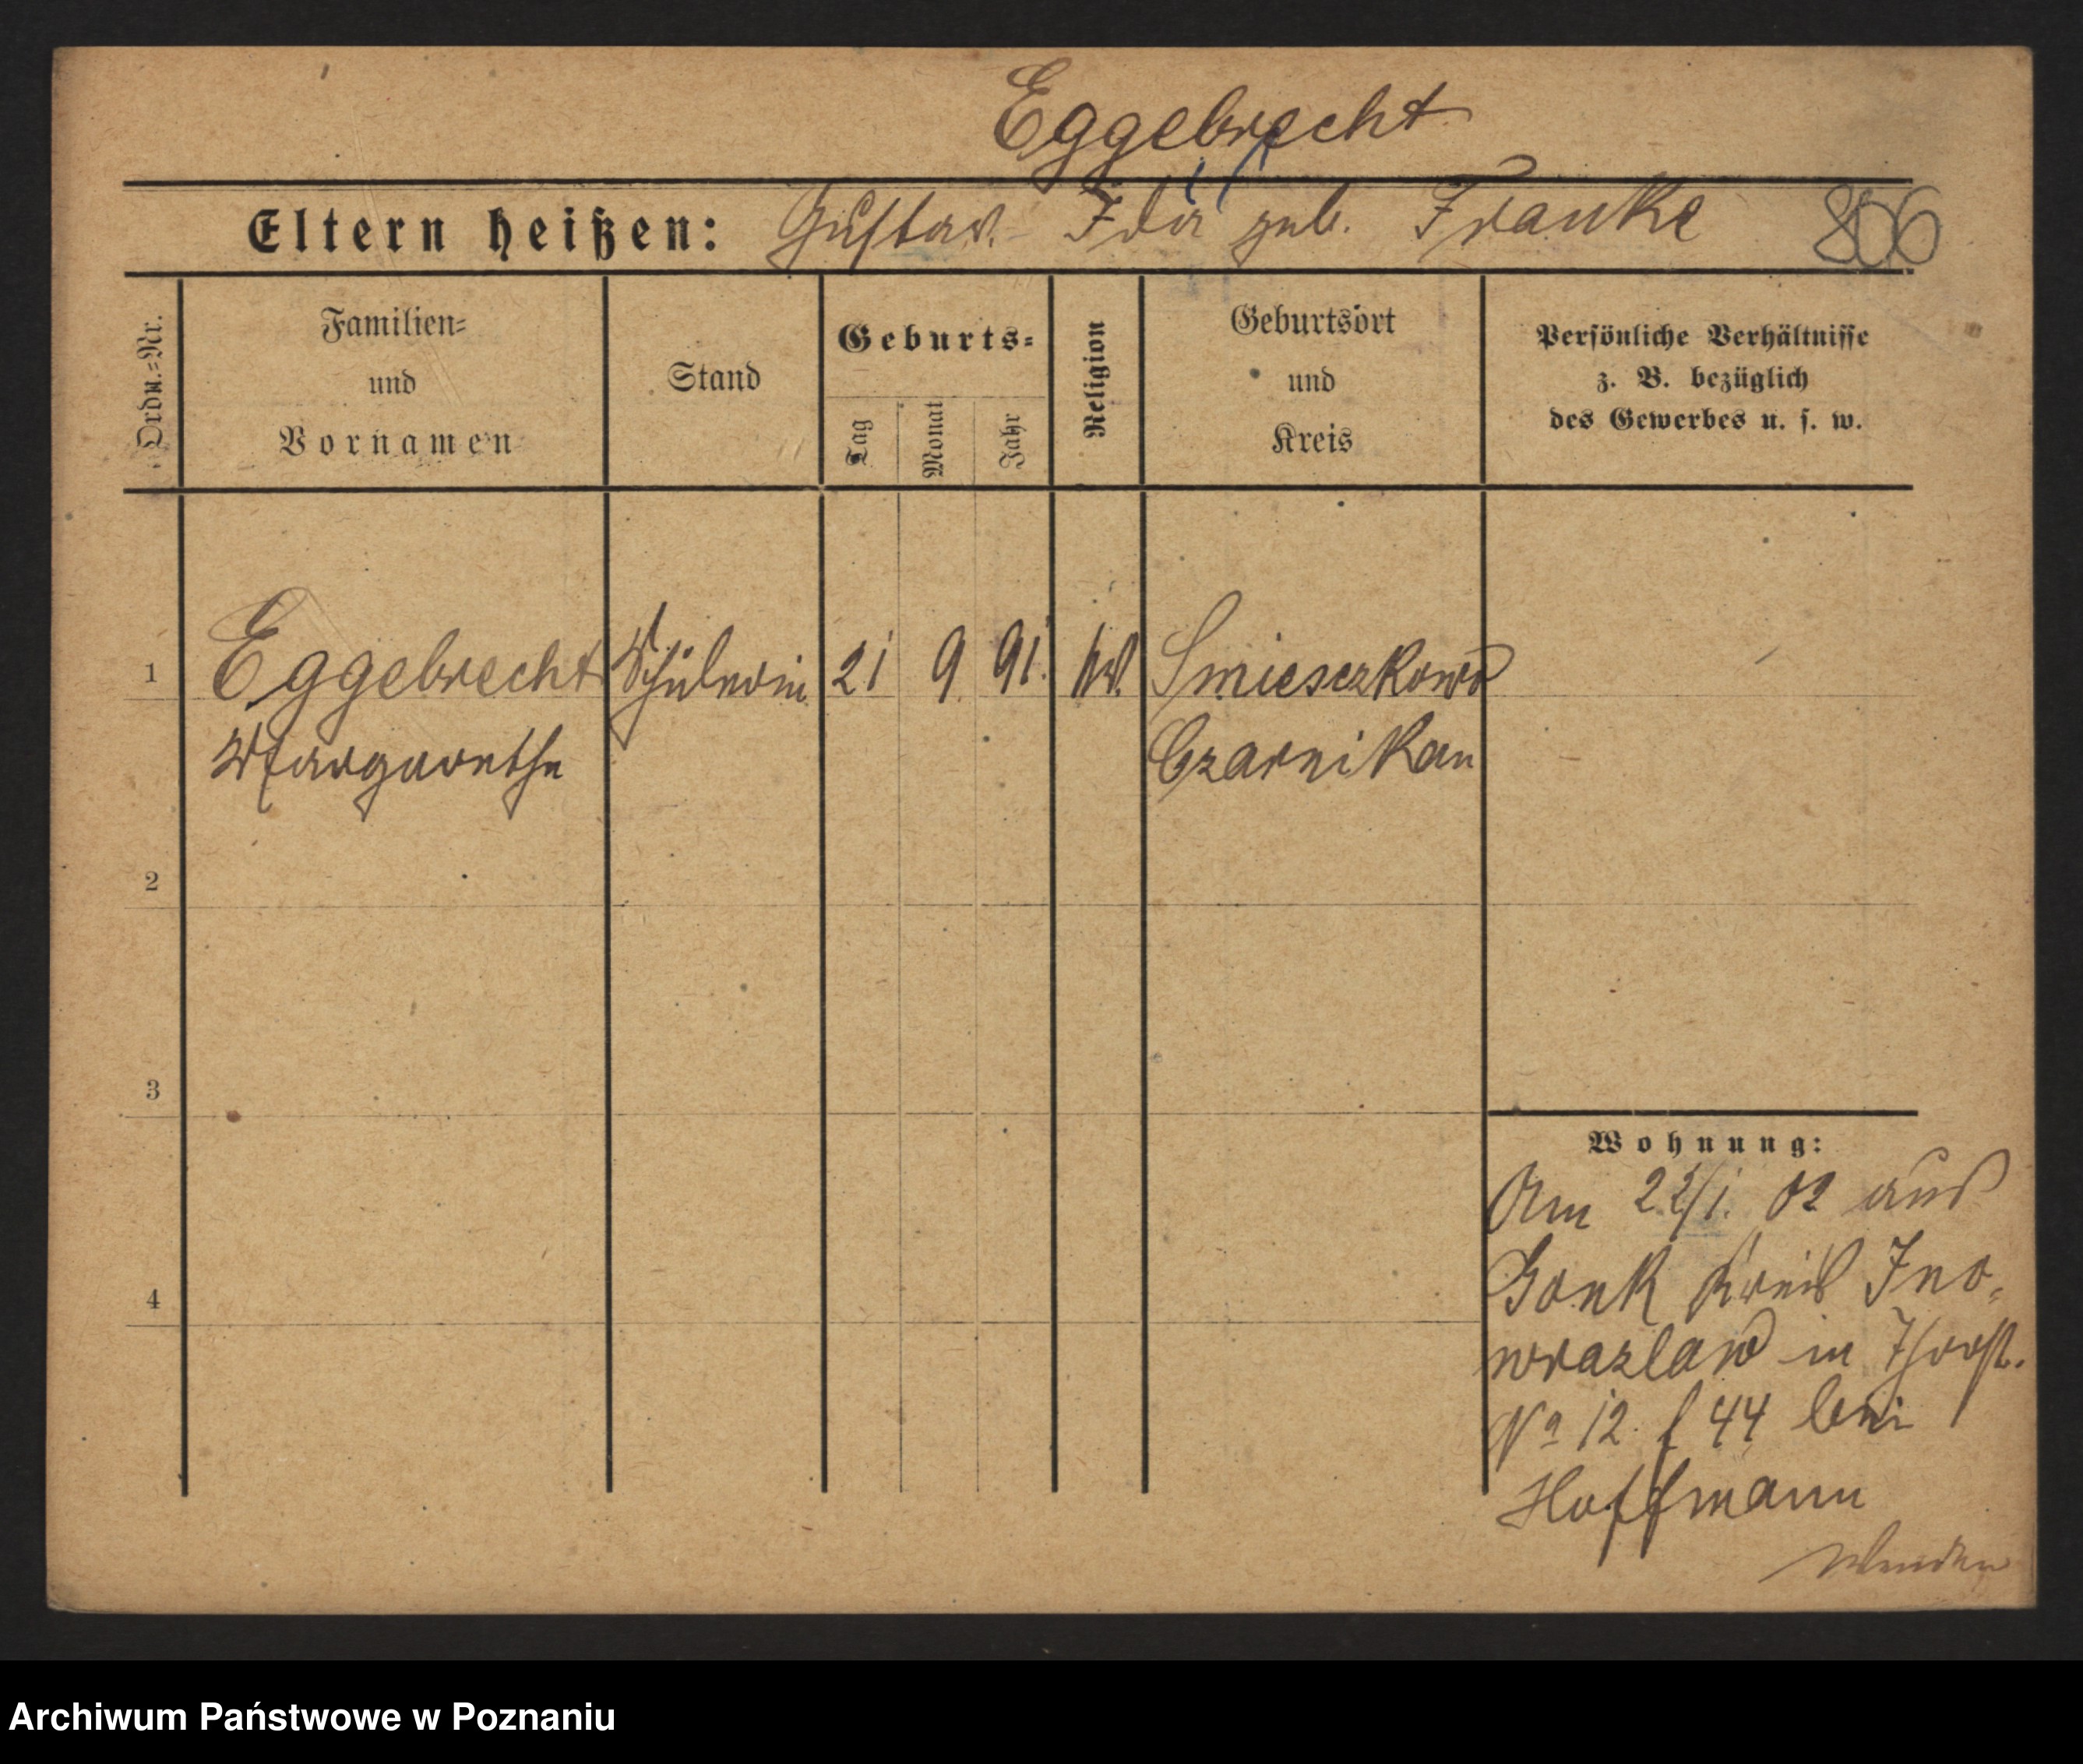 Eggebrecht
Eltern heißen: Gustav. Ida geb. Franke 806
Ordn.=Nr.
Familien=
und
Vornamen
Stand
Geburts=
Tag
Monat
Jahr
Religion
Geburtsort
und
Kreis
Persönliche Verhältnisse
z. B. bezüglich
des Gewerbes u. s. w.
1 Eggebrecht Schülerin 21 9. 91. ev. Smieszkowo
Margarethe Czarnikau
2
3
4
Wohnung:
Am 22/1. 02 aus
Gonk Kreis Ino=
wrazlaw in
No 12. f 44 bei
Hoffmann
Wenden
Archiwum Państwowe w Poznaniu